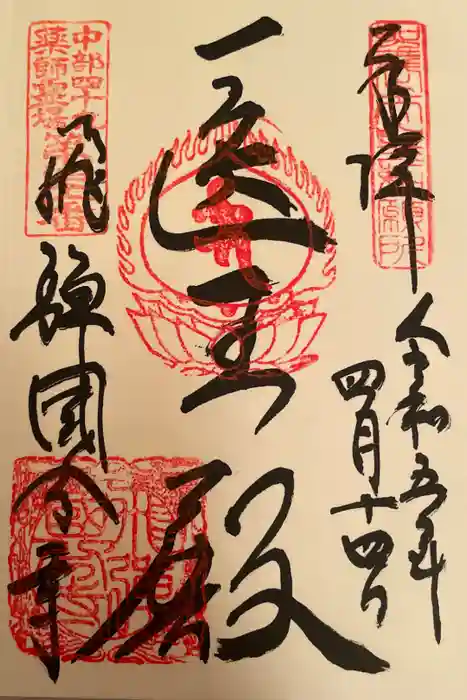 奉拝
令和五年
四月十四日
医王殿
中部四十九
薬師霊場
飛騨國分寺